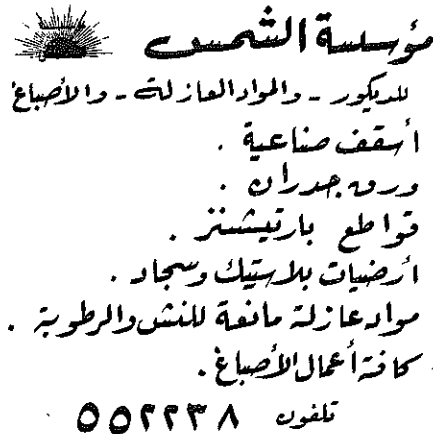 مؤسسة الشمس
للديكور - والمواد العازلة - والأصباغ
أسقف صناعية .
ورق جدران .
قواطع بارتيشنز .
أرضيات بلاستيك وسجاد .
مواد عازلة مانعة للنش والرطوبة .
كافة أعمال الأصباغ .
تلفون ٥٥٢٢٣٨